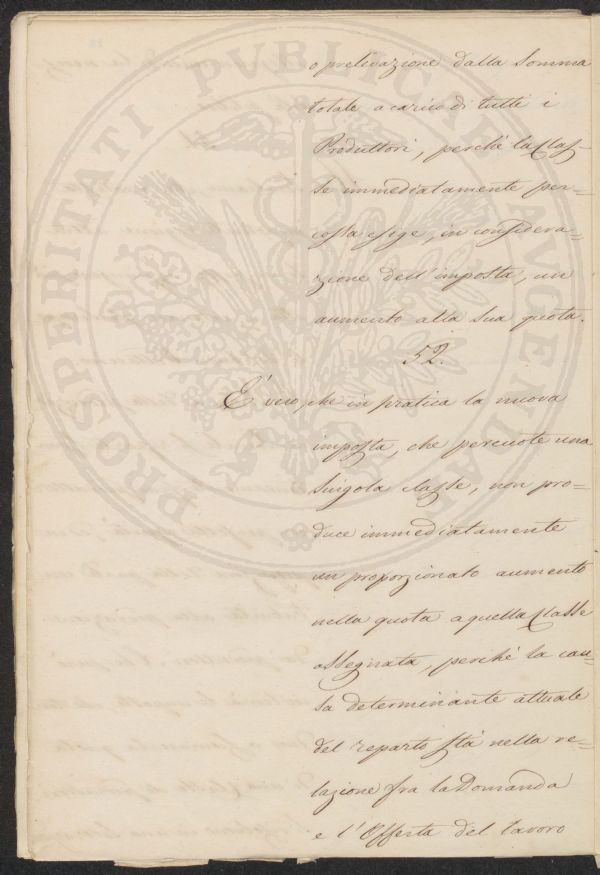 o prelevazione dalla Somma
totale a carico di tutti i
Produttori, perché la Clas-
se immediatamente per-
cossa esige, in considera-
zione dell'imposta, un
aumento alla sua quota.
52.
E' vero, che in pratica la nuova
imposta, che percuote una
Singola Classe, non pro-
duce immediatamente
un proporzionato aumento
nella quota a quella Classe
assegnata, perché la cau-
sa determinante attuale
del reparto stà nella re-
lazione fra la Domanda
e l'Offerta del lavoro
PROSPERITATI PVBLICAE AVGENDAE